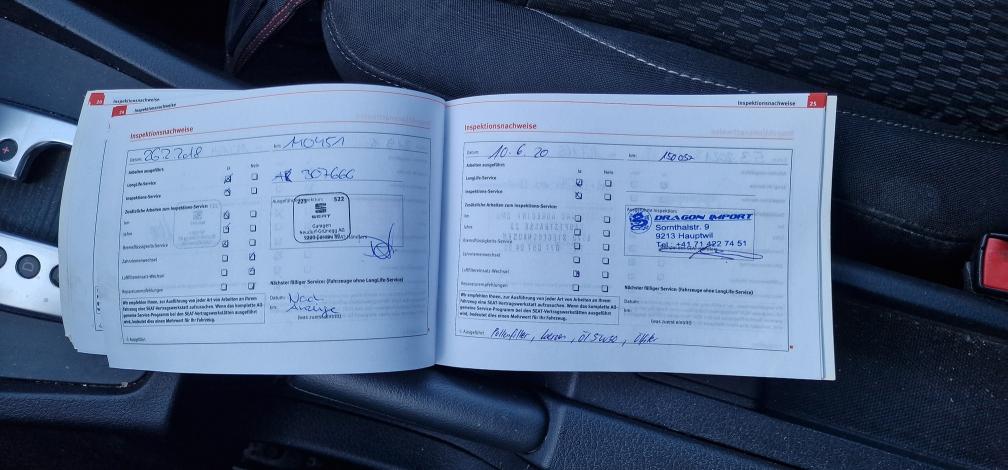 20 Inspektionsnachweise
24 Inspektionsnachweise
Inspektionsnachweise
Datum: 26.2.2018
km: 110451
Arbeiten ausgeführt:
Ja Nein
LongLife-Service
307666
Inspektions-Service
Zusätzliche Arbeiten zum Inspektions-Service:
223 522
SEAT
km
Garagen
Neudorf-Grünegg AG
Jahre
Bremsflüssigkeits-Service
Zahnriemenwechsel
Luftfiltereinsatz-Wechsel
Reparaturumfang
Nächster fälliger Service (Fahrzeuge ohne LongLife-Service)
Wir empfehlen Ihnen, zur Ausführung von jeder Art von Arbeiten an Ihrem
Fahrzeug eine SEAT-Vertragswerkstatt aufzusuchen. Wenn das komplette All-
gemeine Service-Programm bei den SEAT-Vertragswerkstätten ausgeführt
wird, bedeutet dies einen Mehrwert für Ihr Fahrzeug.
Datum: Nach
km: Anzeige
(was zuerst eintritt)
Ausgeführt
Inspektionsnachweise 25
Inspektionsnachweise
Datum: 10.6.20
km: 150057
Arbeiten ausgeführt:
Ja Nein
LongLife-Service
Inspektions-Service
Zusätzliche Arbeiten zum Inspektions-Service:
km
Jahre
Bremsflüssigkeits-Service
Zahnriemenwechsel
Luftfiltereinsatz-Wechsel
Reparaturumfang
DRAGON IMPORT
Sornthalstr. 9
9213 Hauptwil
Tel. +41 71 422 74 51
Nächster fälliger Service (Fahrzeuge ohne LongLife-Service)
Wir empfehlen Ihnen, zur Ausführung von jeder Art von Arbeiten an Ihrem
Fahrzeug eine SEAT-Vertragswerkstatt aufzusuchen. Wenn das komplette All-
gemeine Service-Programm bei den SEAT-Vertragswerkstätten ausgeführt
wird, bedeutet dies einen Mehrwert für Ihr Fahrzeug.
Datum:
km:
(was zuerst eintritt)
Ausgeführt Pollenfilter, Kerzen, Öl 5W30, Ölfilter